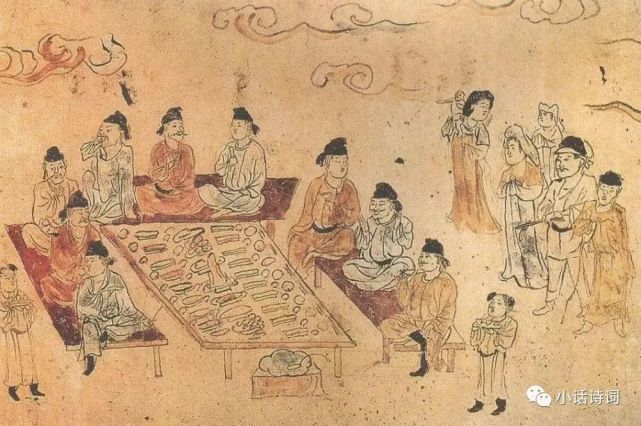 小话诗词